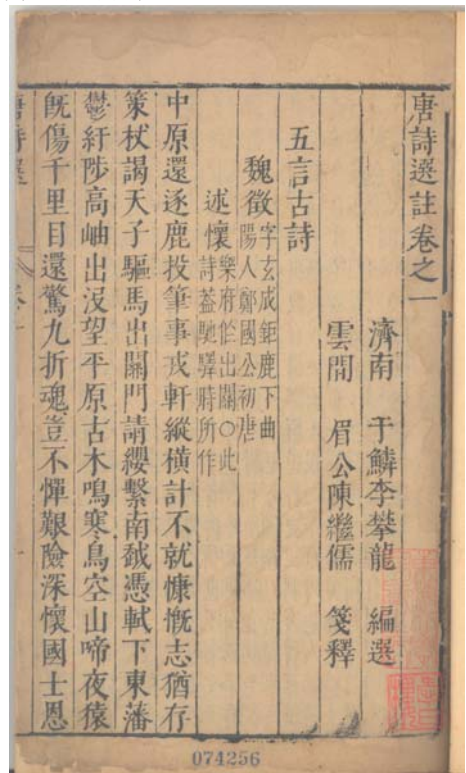 唐詩選註卷之一
濟南　于鱗李攀龍　編選
雲間　眉公陳繼儒　箋釋
五言古詩
魏徵字玄成鉅鹿下曲
陽人鄭國公初唐
述懷樂府作出關○此
詩蓋馳驛時所作
中原還逐鹿投筆事戎軒縱橫計不就慷慨志猶存
策杖謁天子驅馬出關門請纓繫南越憑軾下東藩
鬱紆陟高岫出沒望平原古木鳴寒鳥空山啼夜猿
既傷千里目還驚九折魂豈不憚艱險深懷國士恩
074256